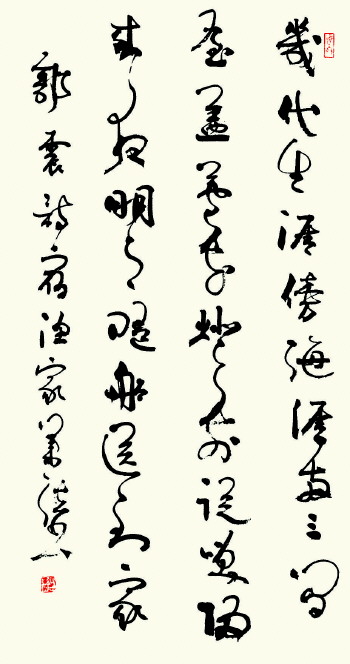 幾代生涯傍海涯两三间
屋盖芦花灯前說笑歸
来夜明月随船送到家
郭震詩宿渔家